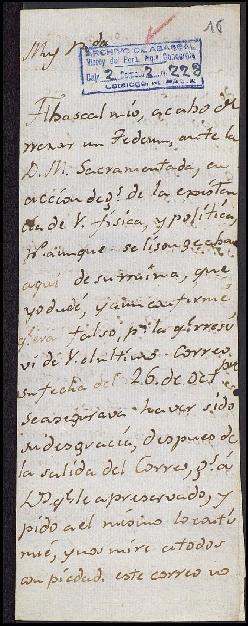 16
Muy S.or mio
ARCHIVO DE ABASCAL
Virrey del Perú, Mqs. Concordia
2 2 228
Abascal mio, acabo de
rrezar un Tedeum, ante la
D. M. Sacramentada, en
accion de g.s de la existen
cia de V. fisica, y politica,
aunque se lisongeaban
aqui de su rruina, que
yo dudé, y aun confirmé
era falso, p.r la q.e rresevi
vi de V. el ultimo correo
su fecha del 26. de
se asegurava haver sido
su desgracia, despues de
la salida del Correo, g.s á
D.s q.e le a preservado, y
pido a el mismo lo conti
nué, y nos mire a todos
con piedad. este correo no